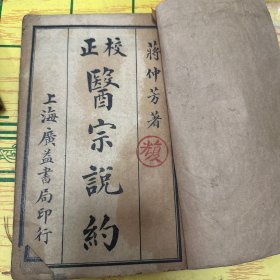 蔣仲芳著
校正
醫宗說約
上海廣益書局印行